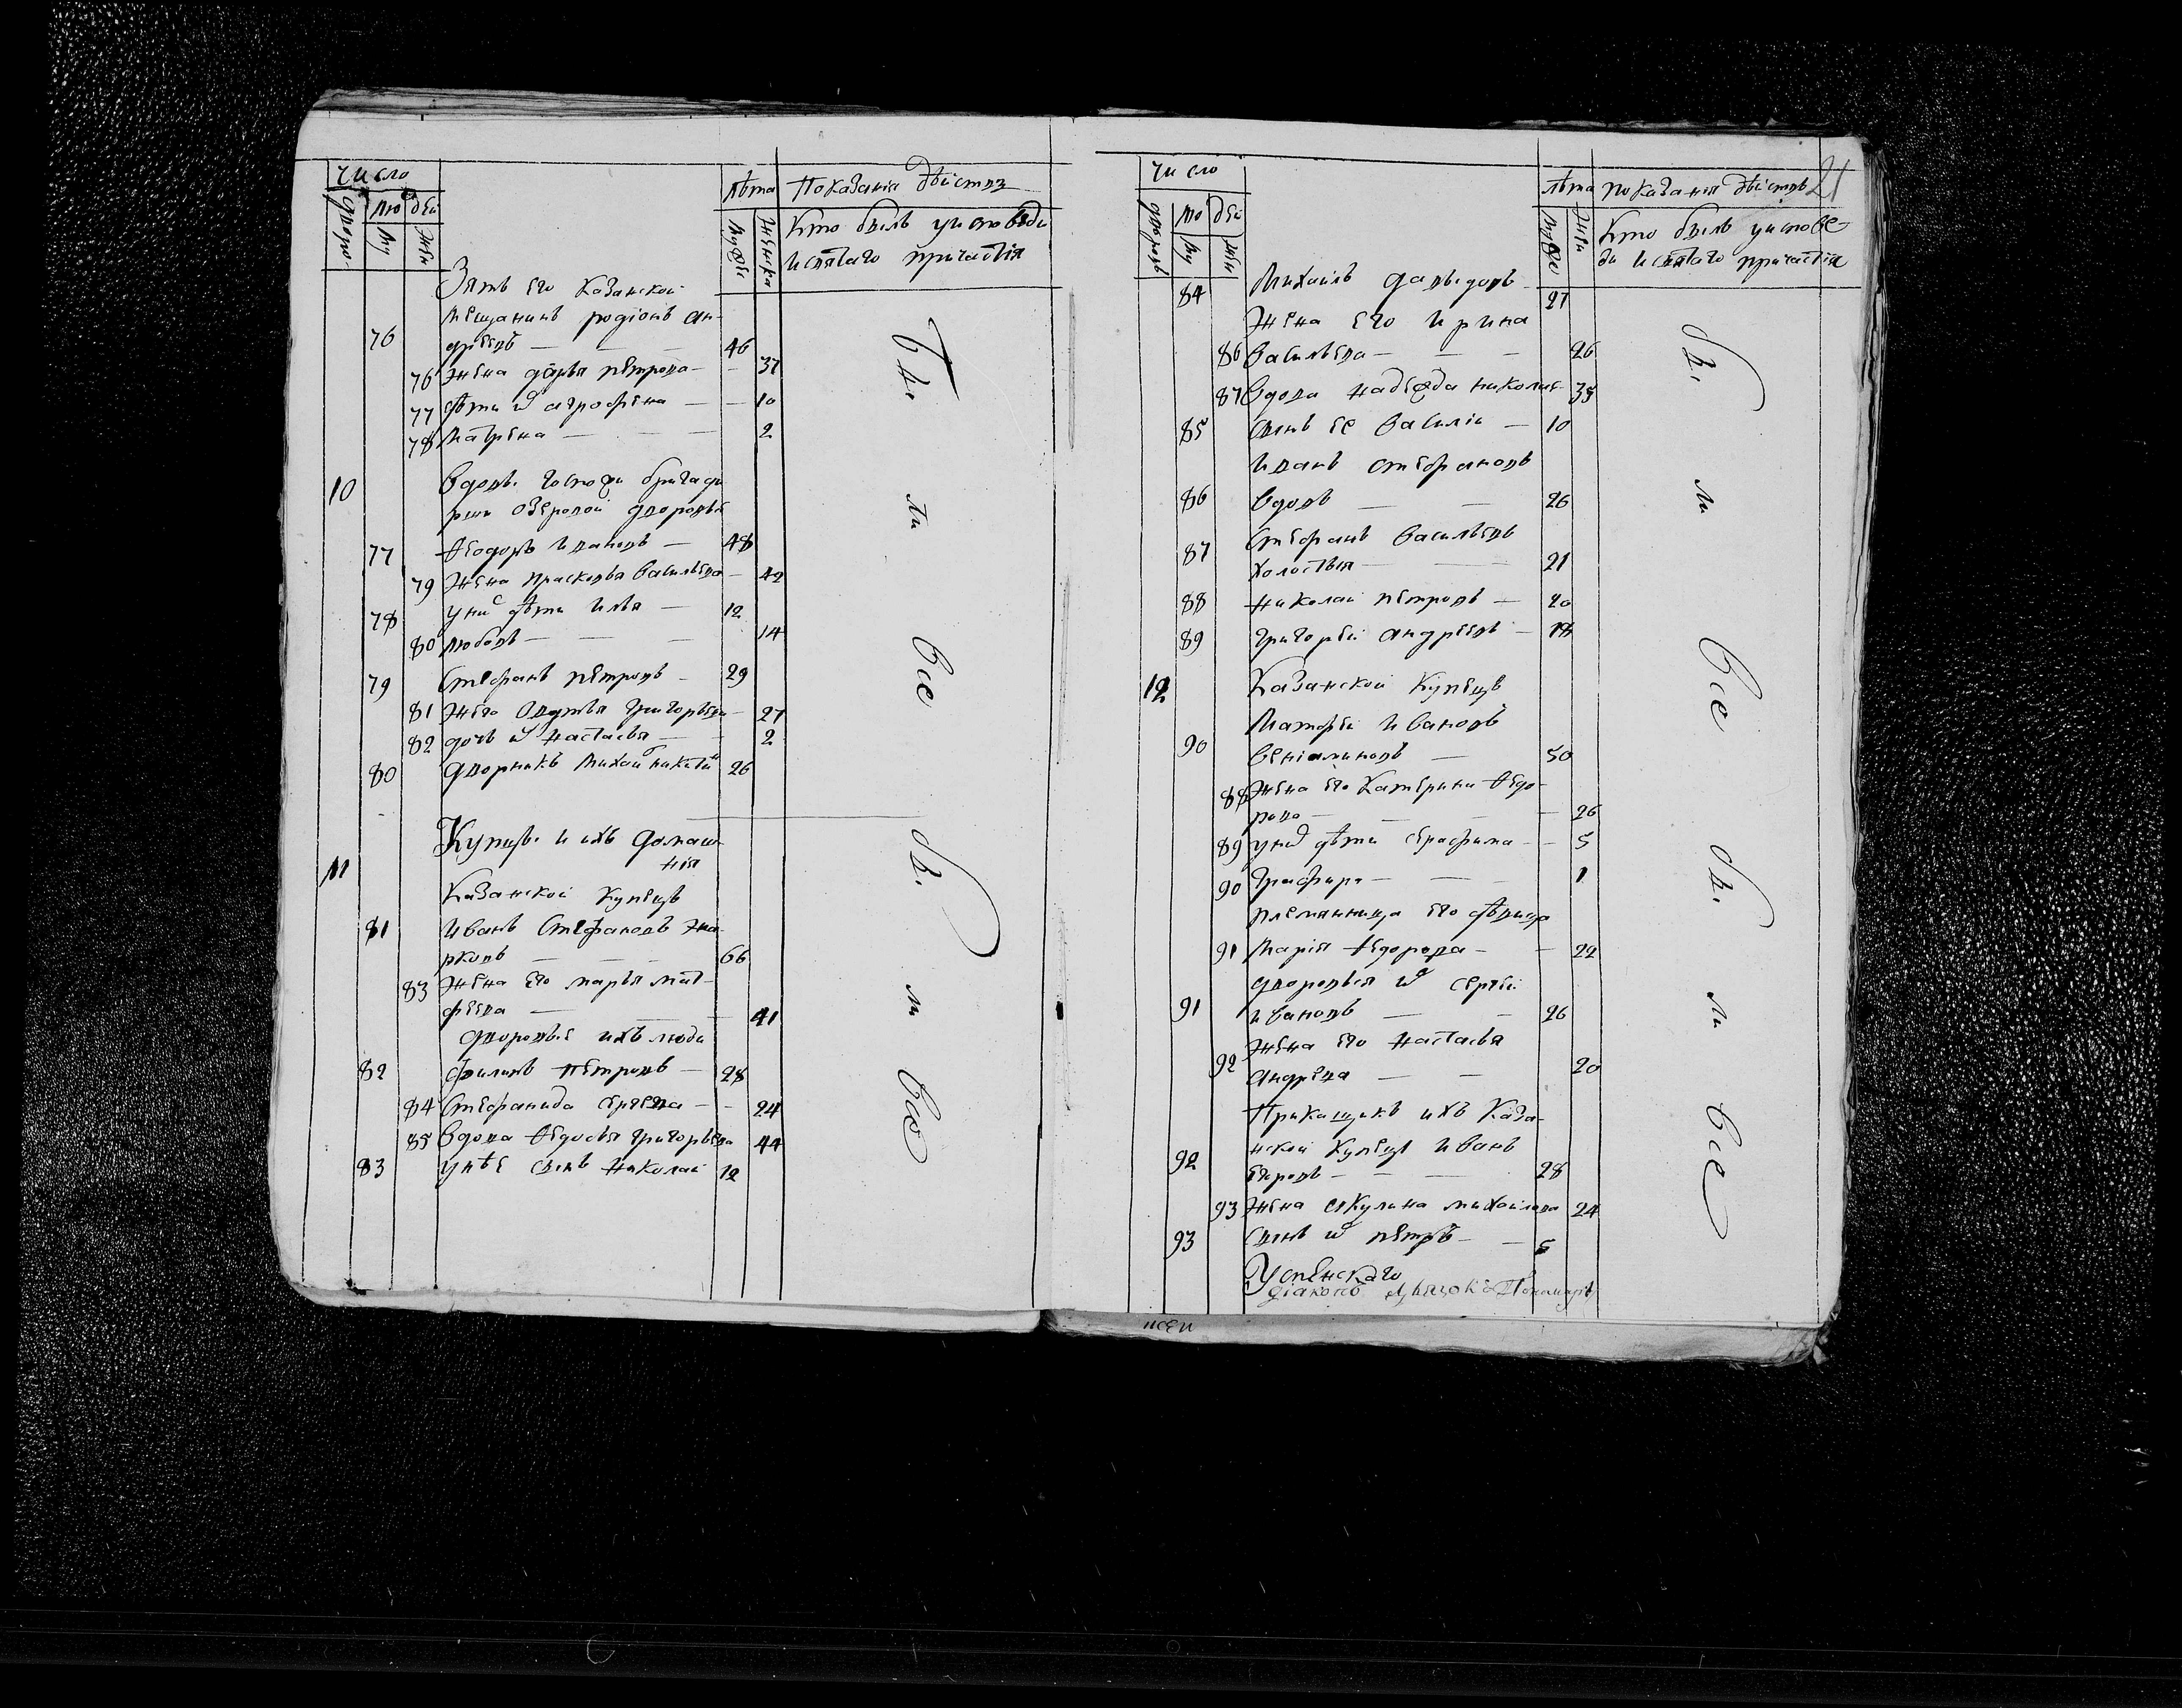 число
дворо-
лю дей
му
жен
лѣта
мужск
женска
Показанія дѣйств
Кто былъ уисповеди
исвятаго причастія
Зять его Казанской
мещанинъ родіонъ ан-
76 дрѣевъ — — — 46
76 жена дарья петрова — — 37
77 дѣти и агрофена — — 10
78 матрена — — — 2
10 Вдовы госпожи бригади
рши озеровой дворовые
77 Ѳеодоръ ивановъ — 48
79 жена прасковья васильева — 42
78 у них дѣти илья — 12
80 любовь — — — 14
79 Стефанъ петровъ — 29
81 же его авдотья григорьева — 27
82 дочь и настасья — — 2
80 дворникъ михаи никити 26
Купцы и ихъ домаш
нія
11 Казанской купецъ
81 иванъ Стефановъ жа
рковъ — — — 66
83 жена его марья мат-
фѣева — — — 41
дворовые ихъ люди
82 филипъ петровъ — 28
84 Стефанида сергѣева — — 24
85 вдова Ѳедосья григорьева 44
83 унѣе сынъ николай 12
бы
ли
все
бы
ли
все
21
число
дворовъ
лю дей
му
жен
лѣта
мужс
жен
показанія дѣйствъ
Кто былъ уиспове-
ди исвятаго причастія
84 Михаилъ давыдовъ 27
жена его ирина
86 васильева — — — 26
87 вдова надежда николае- 35
85 сынъ ее василій — 10
иванъ стефановъ
86 вдовъ — — 26
87 Стефанъ васильевъ
холостыя — — 21
88 николай петровъ — 20
89 григорей андрѣевъ — 18
12 Казанской купецъ
матфѣй ивановъ
90 веніаминовъ — 50
88 жена его катерина Ѳедо-
рова — — — 26
89 уних дѣти серафима — — 5
90 Графира — — — 1
племянница его дѣвица
91 марія Ѳедорова — — 22
дворовыя и сергѣй
91 ивановъ — — 26
жена его настасья
92 андрѣева — — 20
Прикащикъ ихъ Каза-
нской купецъ иванъ
92 егоровъ — — — 28
93 жена акулина михайлова 24
93 сынъ и петръ — — 5
Успенскаго
діаконъ Пономарь